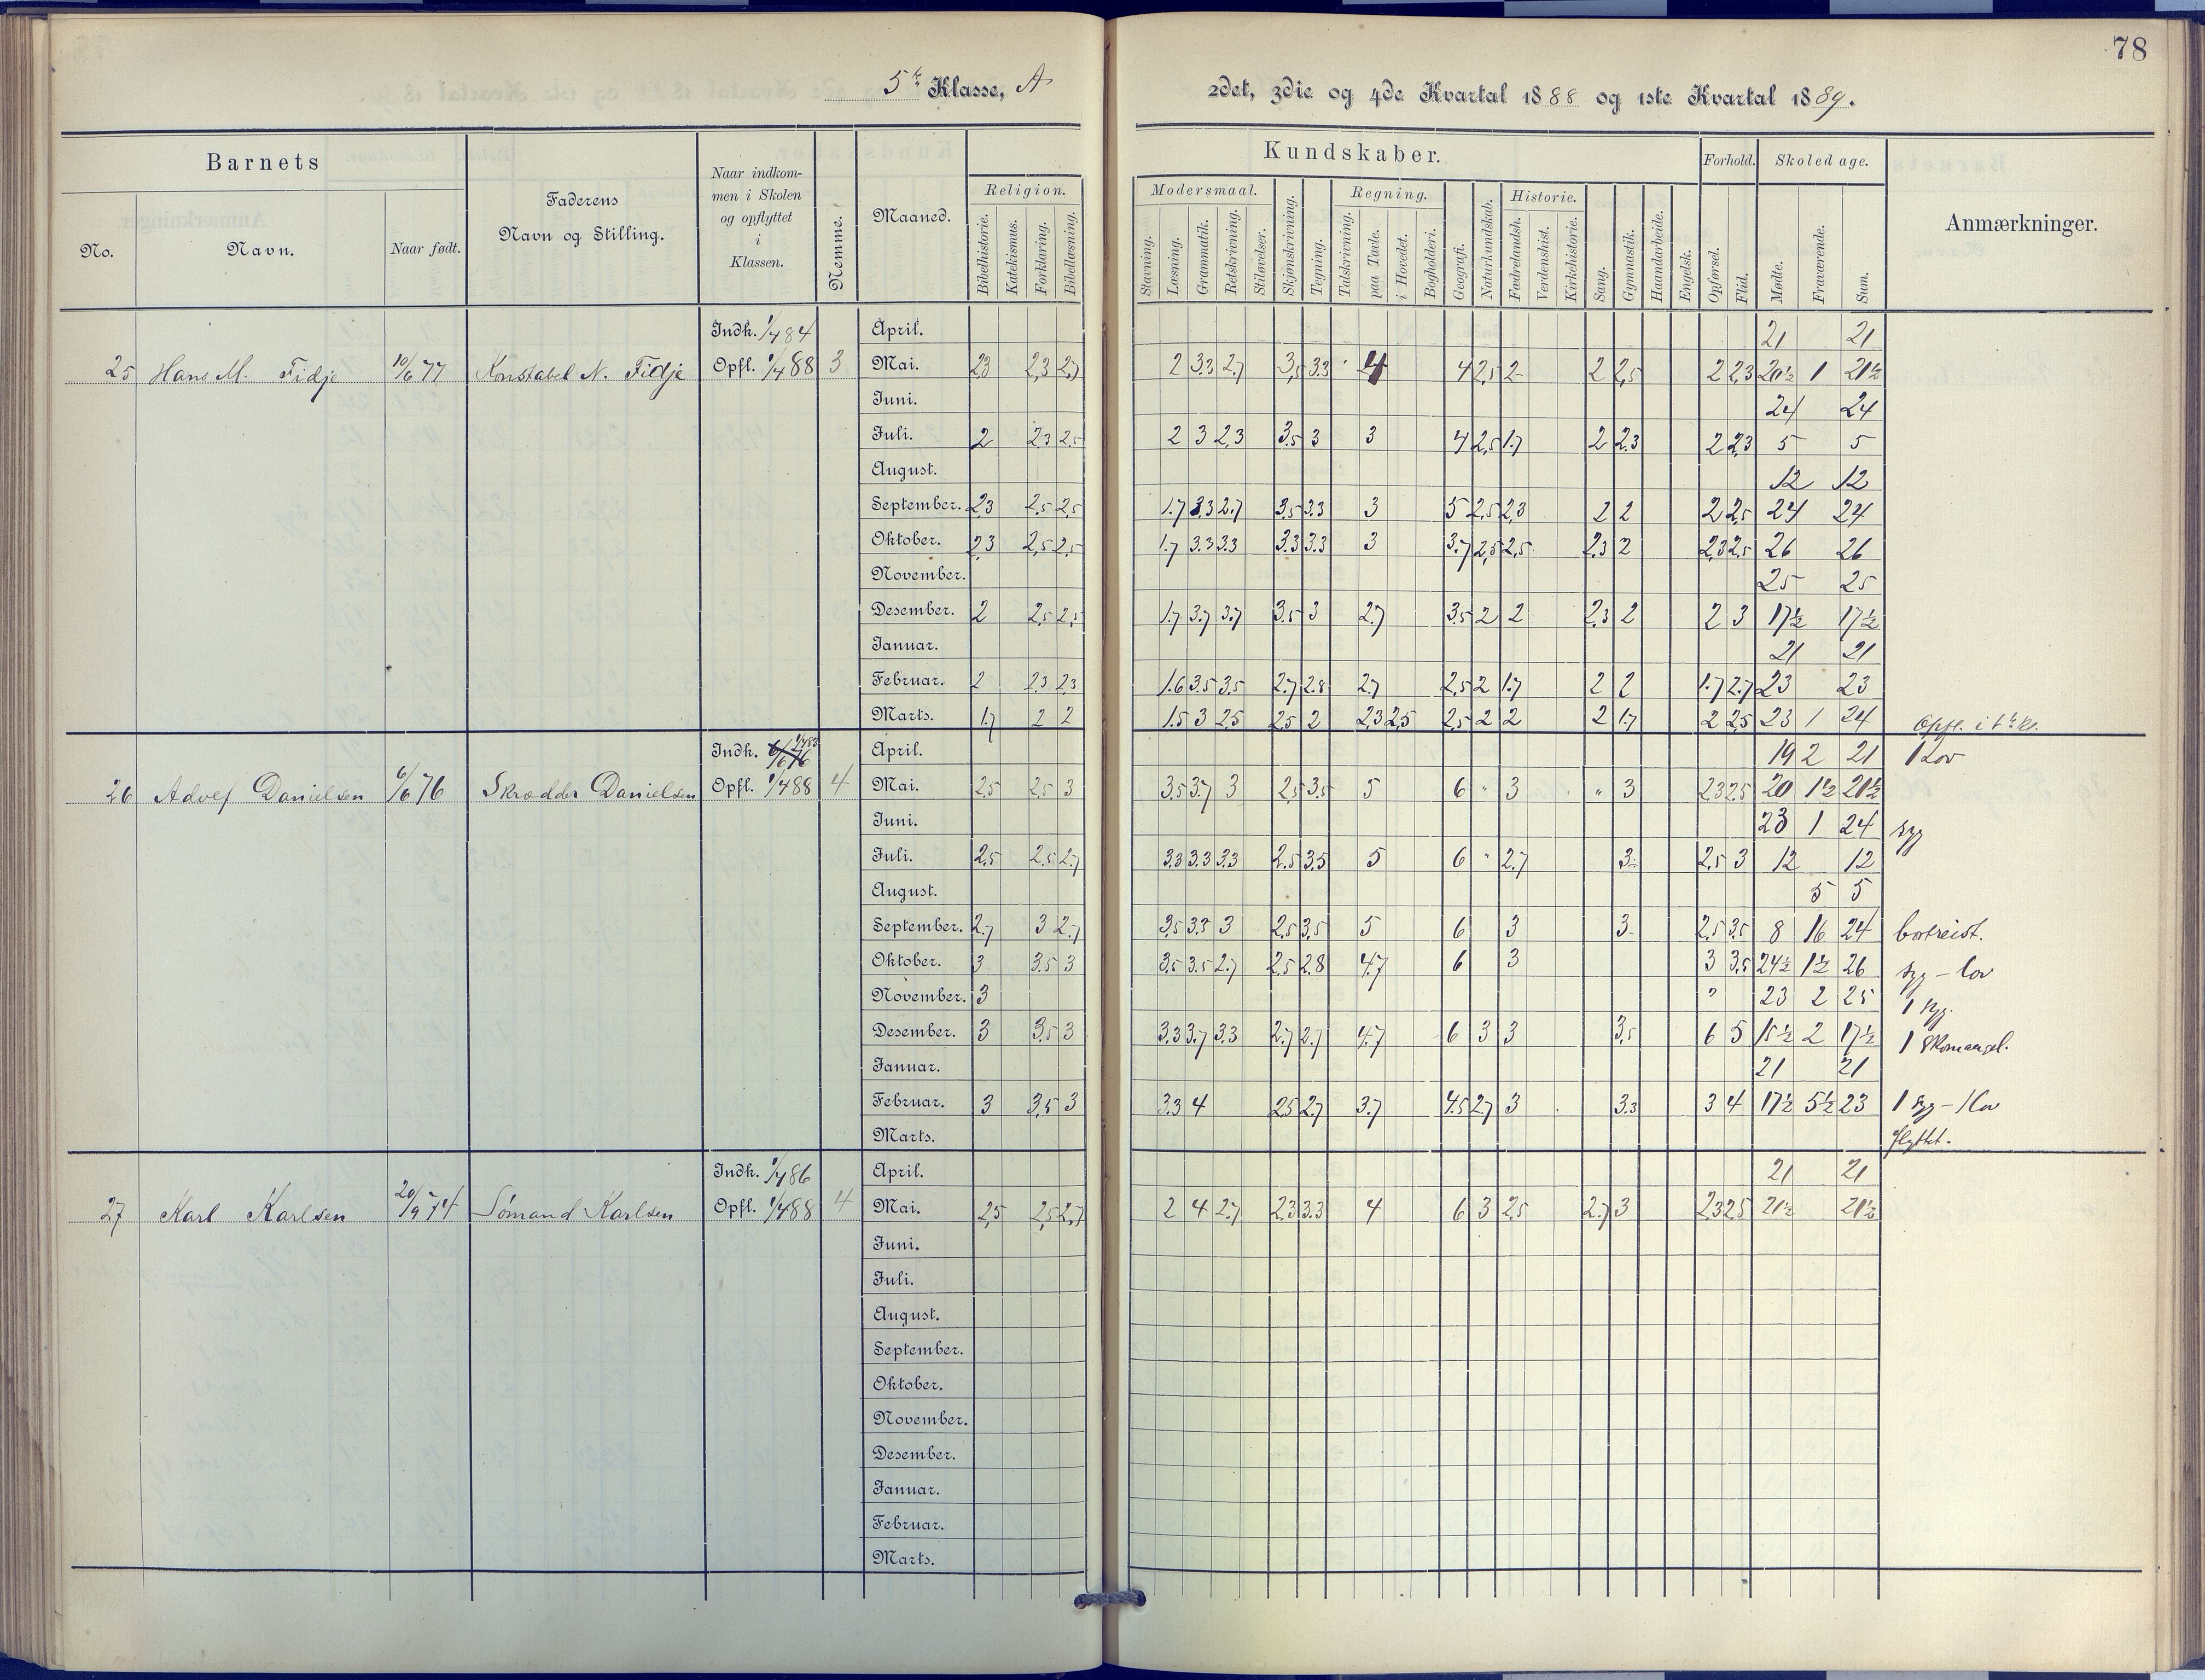 78
5te Klasse, A
2det, 3die og 4de Kvartal 1888 og 1ste Kvartal 1889.
Barnets
Faderens Navn og Stilling.
Naar indkommen i Skolen og opflyttet i Klassen.
Nemme.
Maaned.
Kundskaber.
Forhold.
Skoledage.
Anmærkninger.
No.
Navn.
Naar født.
Religion.
Modersmaal.
Regning.
Historie.
Bibelhistorie. Katekismus. Forklaring. Bibellæsning.
Stavning. Læsning. Grammatik. Retskrivning. Stiløvelser. Skjønskrivning. Tegning. Talskrivning. paa Tavle. i Hovedet. Bogholderi. Geografi. Naturkundskab. Fædrelandsh. Verdenshist. Kirkehistorie. Sang. Gymnastik. Haandarbeide. Engelsk. Opførsel. Flid. Mødte. Fraværende. Sum.
Indk. 1/4 84 April. 21 21
25 Hans M. Fidje 10/6 77 Konstabel N. Fidje Opfl. 1/4 88 3 Mai. 2,3 2,3 2,7 2 3.3 2,7 3,5 3.3 4 4 2,5 2 2 2,5 2 2,3 20½ 1 21½
Juni. 24 24
Juli. 2 2,3 2,5 2 3 2,3 3.5 3 3 4 2,5 1.7 2 2.3 2 2,3 5 5
August. 12 12
September. 2,3 2,5 2,5 1.7 3.3 2.7 3,5 3.3 3 5 2,5 2,3 2 2 2 2,5 24 24
Oktober. 2,3 2,5 2,5 1,7 3.3 3.3 3.3 3.3 3 3.7 2,5 2,5 2,3 2 2,3 2,5 26 26
November. 25 25
Desember. 2 2,5 2,5 1.7 3.7 3.7 3.5 3 2.7 3.5 2 2 2,3 2 2 3 17½ 17½
Januar. 21 21
Februar. 2 2,3 2,3 1.6 3.5 3.5 2.7 2.8 2.7 2,5 2 1.7 2 2 1.7 2.7 23 23
Marts. 1.7 2 2 1.5 3 2.5 2.5 2 2.3 2.5 2.5 2 2 2 1.7 2 2.5 23 1 24 Opfl. i 6te Kl.
Indk. 1/4 83 April. 19 2 21 1 Lov
26 Adolf Danielsen 6/6 76 Skrædder Danielsen Opfl. 1/4 88 4 Mai. 2,5 2,5 3 3.5 3.7 3 2,5 3.5 5 6 " 3 " 3 2,3 2.5 20 1½ 21½
Juni. 23 1 24 syg
Juli. 2,5 2,5 2,7 3.3 3.3 3.3 2.5 3.5 5 6 " 2.7 3 2,5 3 12 12
August. 5 5
September. 2.7 3 2.7 3.5 3.3 3 2.5 3.5 5 6 3 3 2.5 3.5 8 16 24 bortreist.
Oktober. 3 3.5 3 3.5 3.5 2.7 2.5 2.8 4.7 6 3 3 3,5 24½ 1½ 26 syg – lov
November. 3 " 23 2 25 1 syg.
Desember. 3 3.5 3 3.3 3.7 3.3 2.7 2.7 4.7 6 3 3 3,5 6 5 15½ 2 17½ 1 Skomangel.
Januar. 21 21
Februar. 3 3,5 3 3.3 4 2.5 2.7 3.7 4.5 2.7 3 3.3 3 4 17½ 5½ 23 1 syg – 1 lov
Marts. flyttet.
Indk. 1/4 86 April. 21 21
27 Karl Karlsen 20/9 74 Sömand Karlsen Opfl. 1/4 88 4 Mai. 2,5 2,5 2,7 2 4 2.7 2.3 3.3 4 6 3 2,5 2.7 3 2,3 2,5 21½ 21½
Juni.
Juli.
August.
September.
Oktober.
November.
Desember.
Januar.
Februar.
Marts.